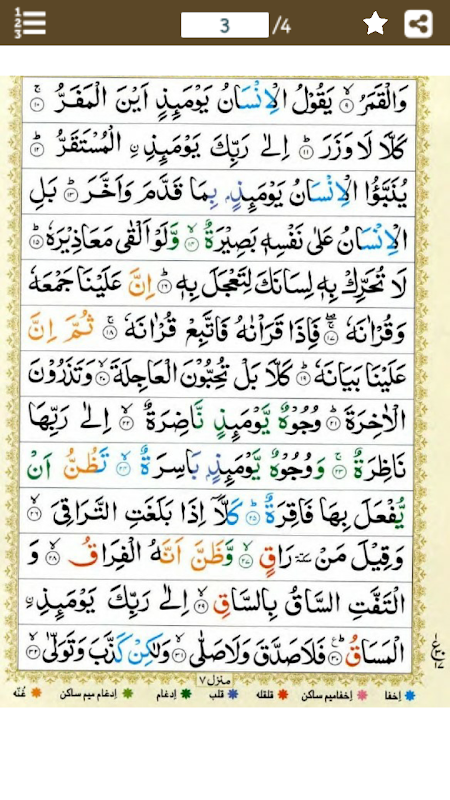 3 /4
وَالْقَمَرُ ۙ۹ يَقُوْلُ الْاِنْسَانُ يَوْمَىِٕذٍ اَيْنَ الْمَفَرُّ ۚ۱۰
كَلَّا لَا وَزَرَ ؕ۱۱ اِلٰى رَبِّكَ يَوْمَىِٕذِ ِۨالْمُسْتَقَرُّ ؕ۱۲
يُنَبَّؤُا الْاِنْسَانُ يَوْمَىِٕذٍۭ بِمَا قَدَّمَ وَاَخَّرَ ؕ۱۳ بَلِ
الْاِنْسَانُ عَلٰى نَفْسِهٖ بَصِيْرَةٌ ۙ۱۴ وَّلَوْ اَلْقٰى مَعَاذِيْرَهٗ ؕ۱۵
لَا تُحَرِّكْ بِهٖ لِسَانَكَ لِتَعْجَلَ بِهٖ ؕ۱۶ اِنَّ عَلَيْنَا جَمْعَهٗ
وَقُرْاٰنَهٗ ۚۖ۱۷ فَاِذَا قَرَاْنٰهُ فَاتَّبِعْ قُرْاٰنَهٗ ۚ۱۸ ثُمَّ اِنَّ
عَلَيْنَا بَيَانَهٗ ؕ۱۹ كَلَّا بَلْ تُحِبُّوْنَ الْعَاجِلَةَ ۙ۲۰ وَتَذَرُوْنَ
الْاٰخِرَةَ ؕ۲۱ وُجُوْهٌ يَّوْمَىِٕذٍ نَّاضِرَةٌ ۙ۲۲ اِلٰى رَبِّهَا
نَاظِرَةٌ ۚ۲۳ وَوُجُوْهٌ يَّوْمَىِٕذٍۭ بَاسِرَةٌ ۙ۲۴ تَظُنُّ اَنْ
يُّفْعَلَ بِهَا فَاقِرَةٌ ؕ۲۵ كَلَّاۤ اِذَا بَلَغَتِ التَّرَاقِيَ ۙ۲۶
وَقِيْلَ مَنْ ٚ سكتة رَاقٍ ۙ۲۷ وَّظَنَّ اَنَّهُ الْفِرَاقُ ۙ۲۸ وَ
الْتَفَّتِ السَّاقُ بِالسَّاقِ ۙ۲۹ اِلٰى رَبِّكَ يَوْمَىِٕذِ ِۨ
الْمَسَاقُ ؕ۳۰ فَلَا صَدَّقَ وَلَا صَلّٰى ۙ۳۱ وَلٰكِنْ كَذَّبَ وَتَوَلّٰى ۙ۳۲
منزل ۷
اِخفا اِخفامیم ساکن قلقله قلب اِدغام اِدغام میم ساکن غُنّه